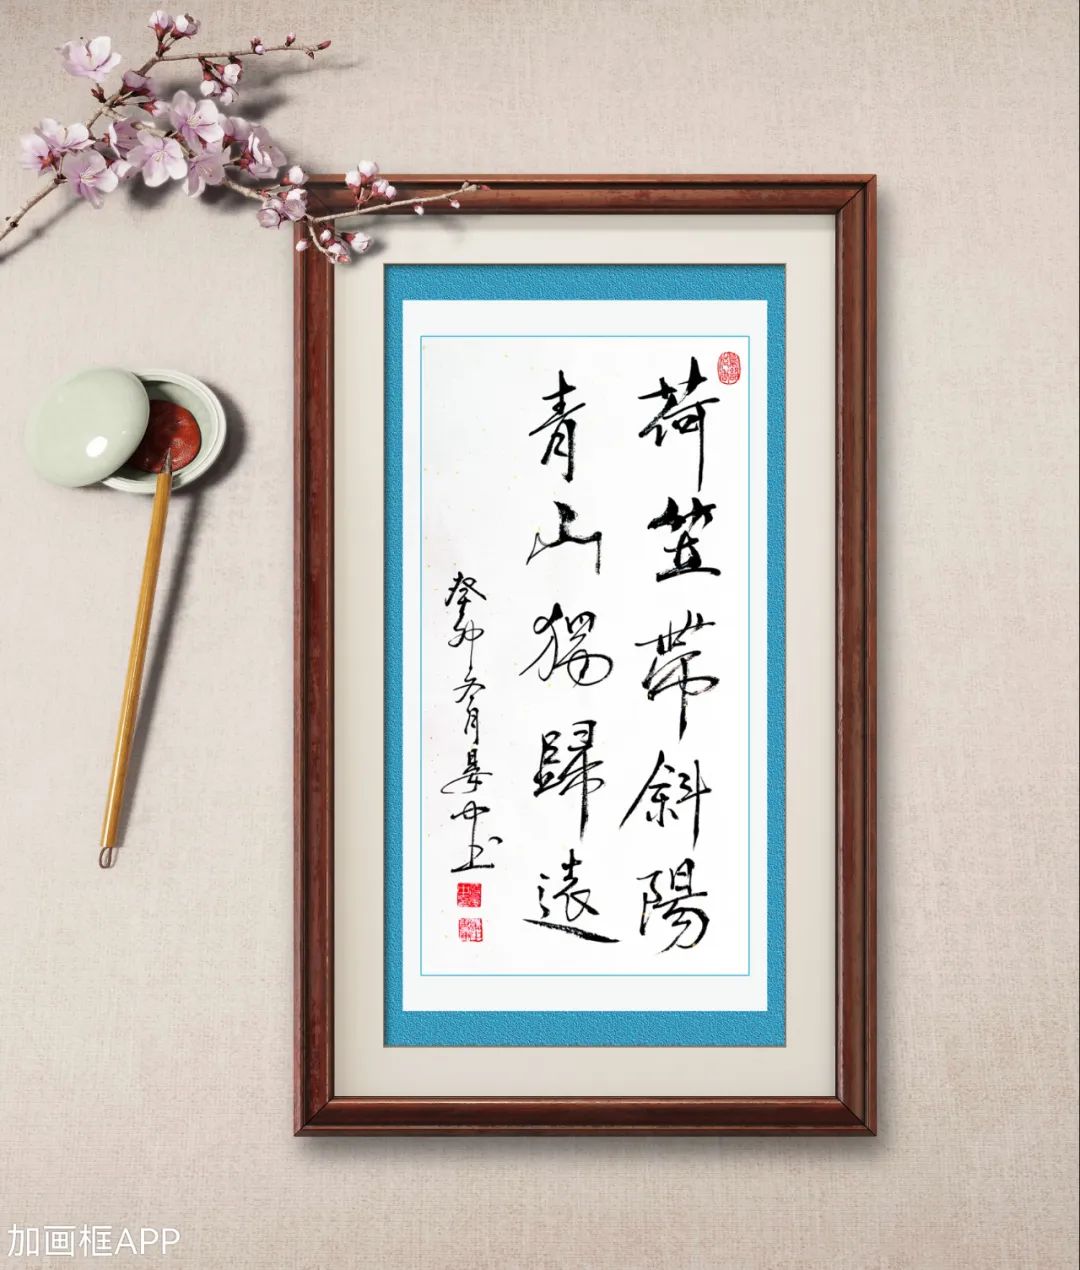 荷笠帶斜陽
青山獨歸遠
癸卯冬月晏中书
加画框APP